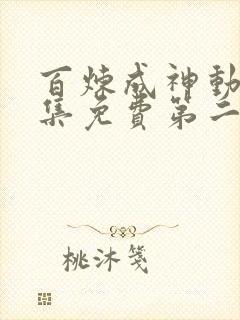 百炼成神动
集免费第二
桃沐笺